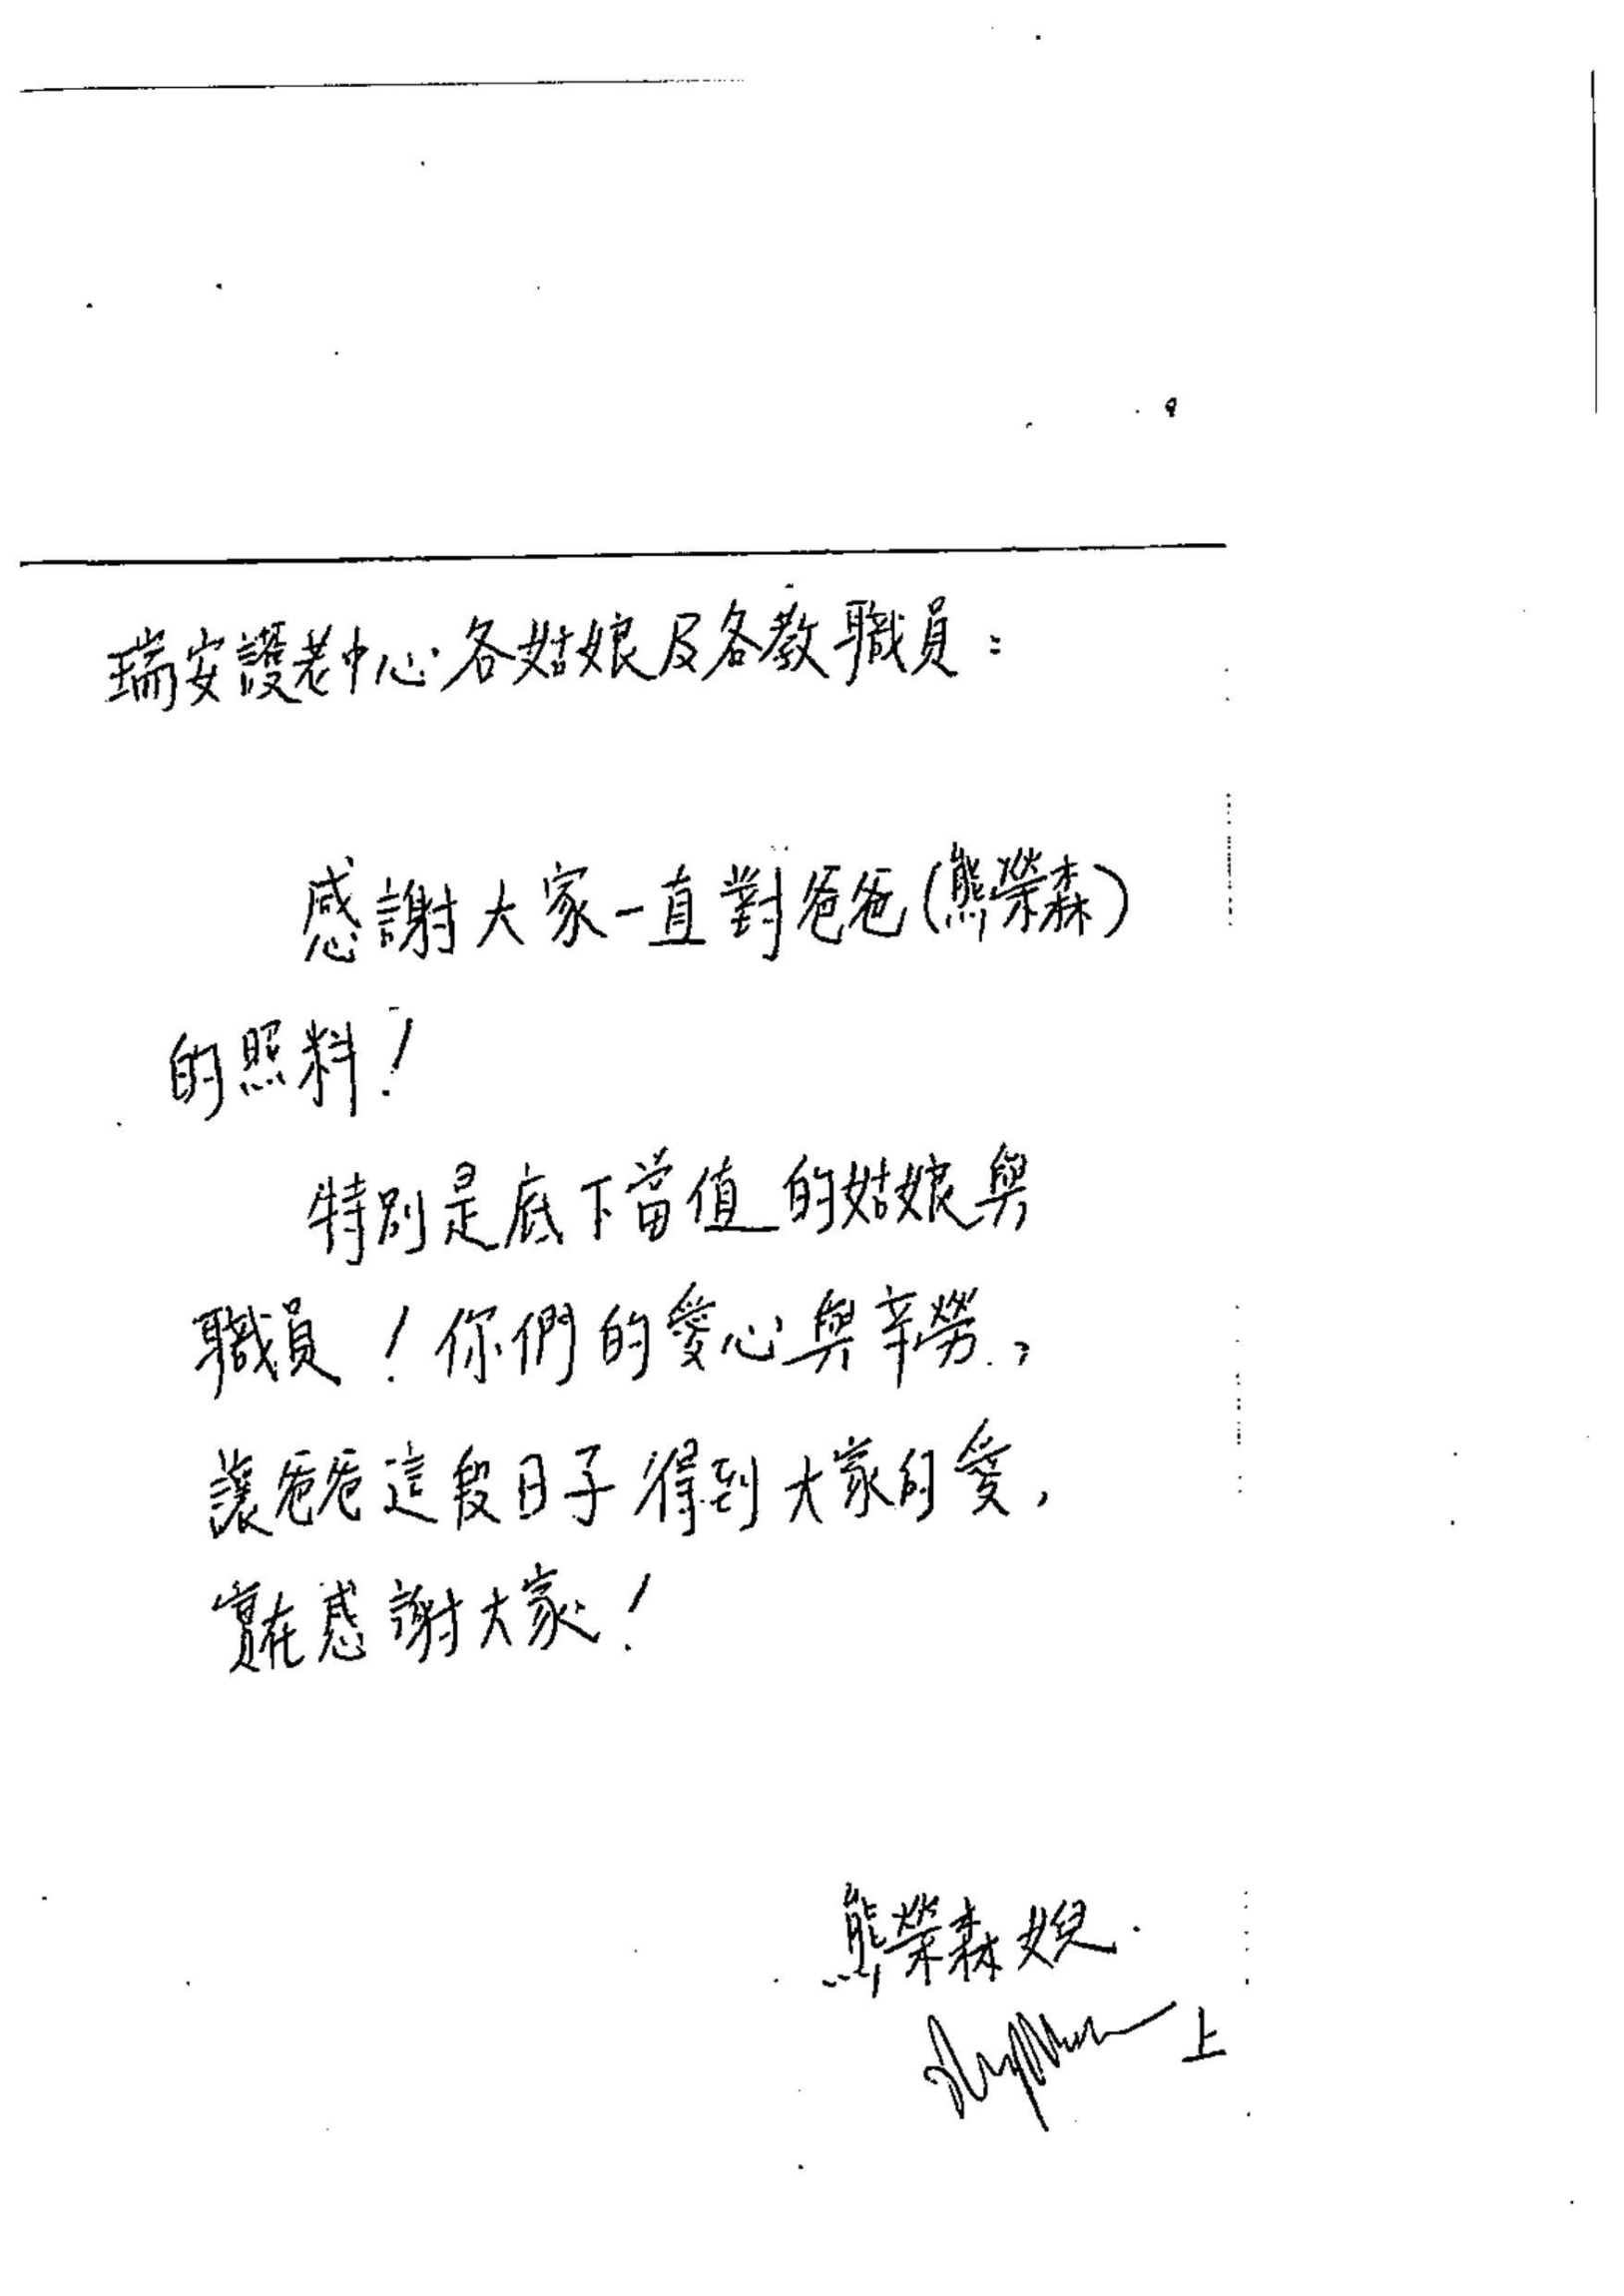 瑞安護老中心各姑娘及各教職員：
感謝大家一直對爸爸（熊榮森）
的照料！
特別是底下當值的姑娘與
職員！你們的愛心與辛勞，
讓爸爸這段日子得到大家的愛，
實在感謝大家！
熊榮森女兒
上